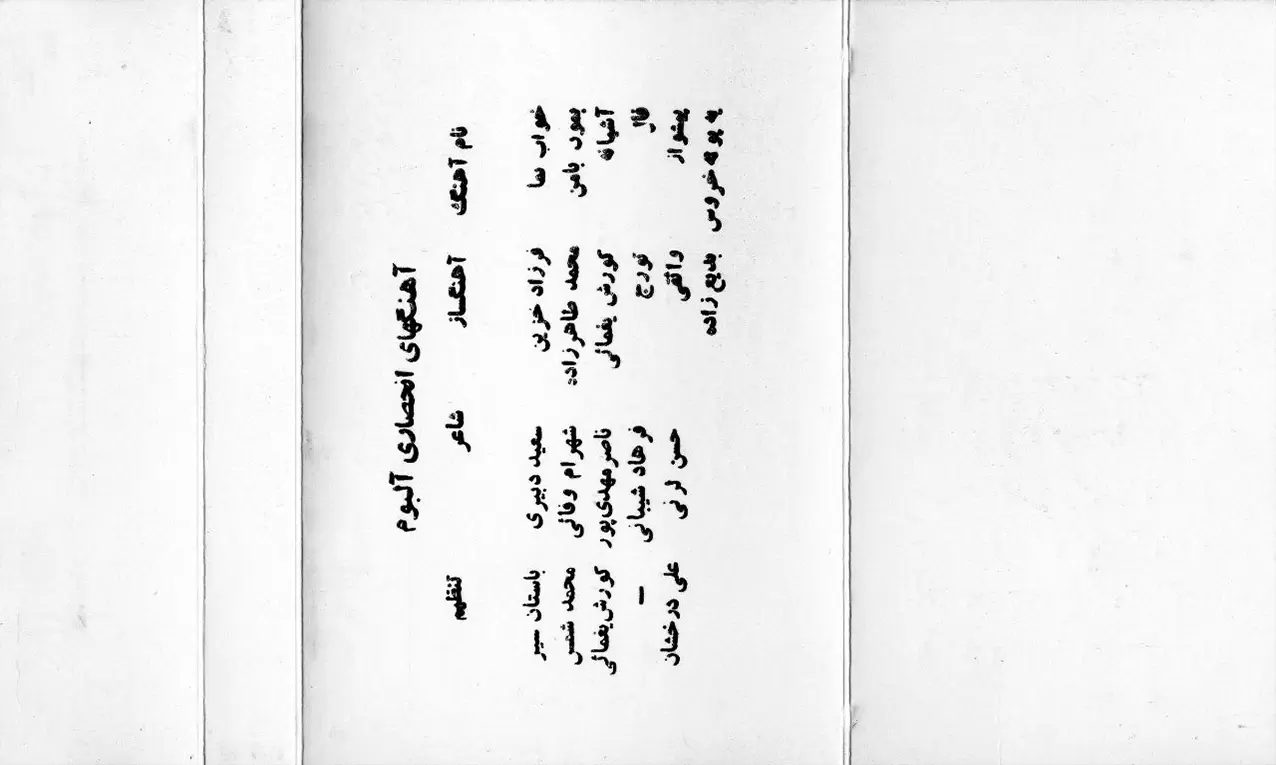 آهنگهای انحصاری آلبوم
نام آهنگ آهنگساز شاعر تنظیم
خواب نما فرزاد حزین سعید دبیری باستان سیر
بمون بامن محمد طاهرزاده شهرام وفائی محمد شمس
آشیانه کورش یغمائی ناصر مهدی پور کورش یغمائی
فال تورج فرهاد شیبانی –
پیشواز واثقی حسن لرنی علی درخشان
یه پوله خروس بدیع زاده